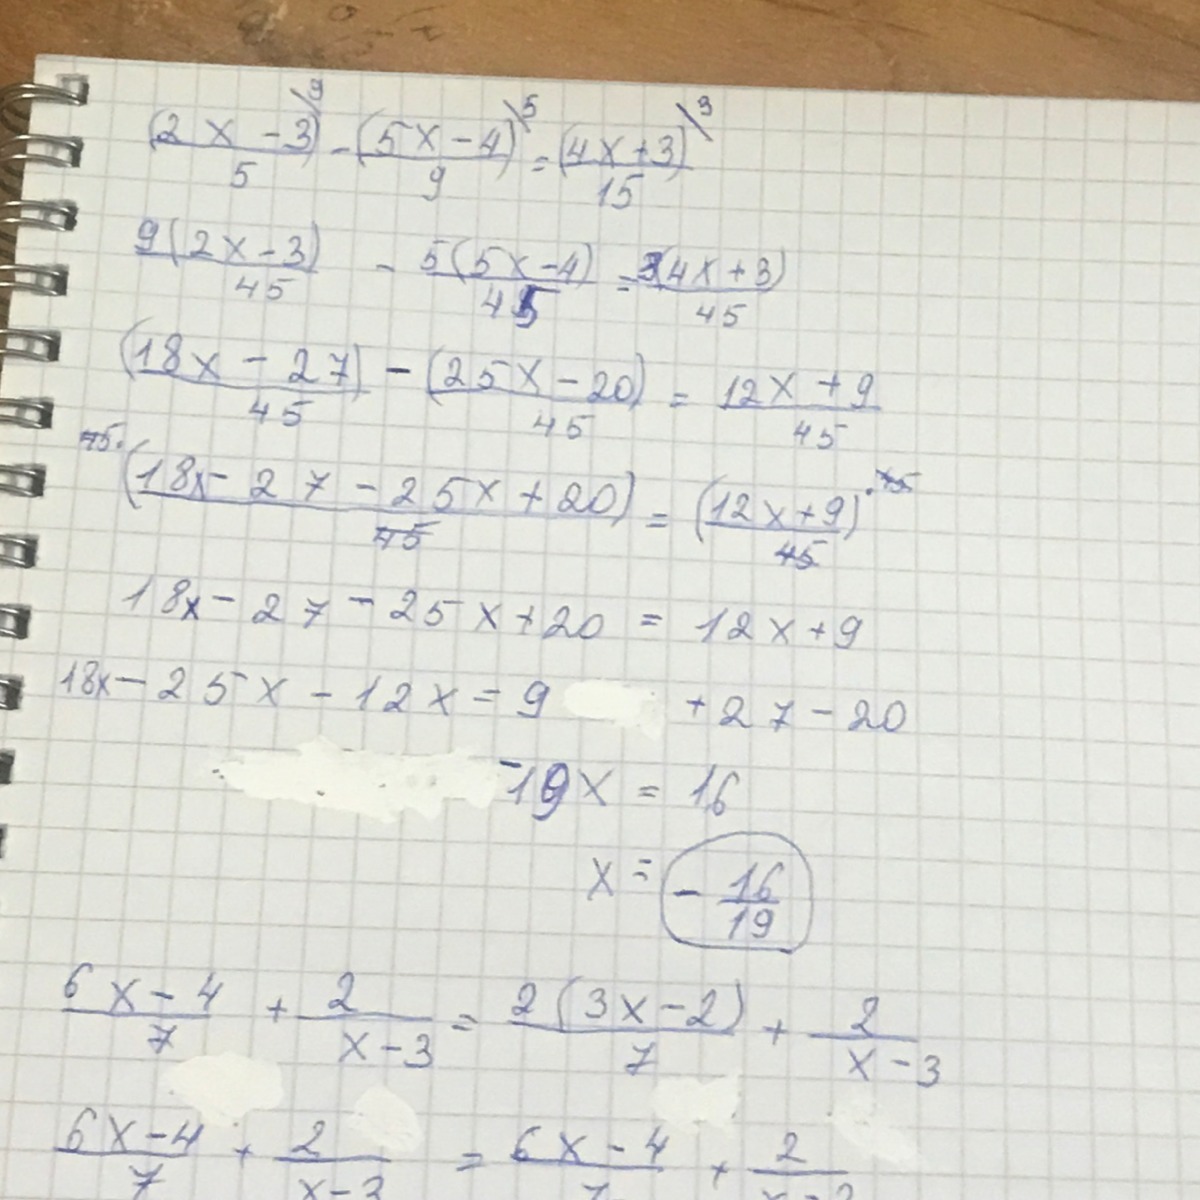 (2x-3)\9/5 - (5x-4)\5/9 = (4x+3)\3/15
9(2x-3)/45 - 5(5x-4)/45 = 3(4x+3)/45
(18x-27)/45 - (25x-20)/45 = 12x+9/45
45·(18x-27-25x+20)/45 = (12x+9)·45/45
18x-27-25x+20 = 12x+9
18x-25x-12x=9 +27-20
-19x = 16
x = -16/19
6x-4/7 + 2/x-3 = 2(3x-2)/7 + 2/x-3
6x-4/7 + 2/x-3 = 6x-4/7 + 2/x-3